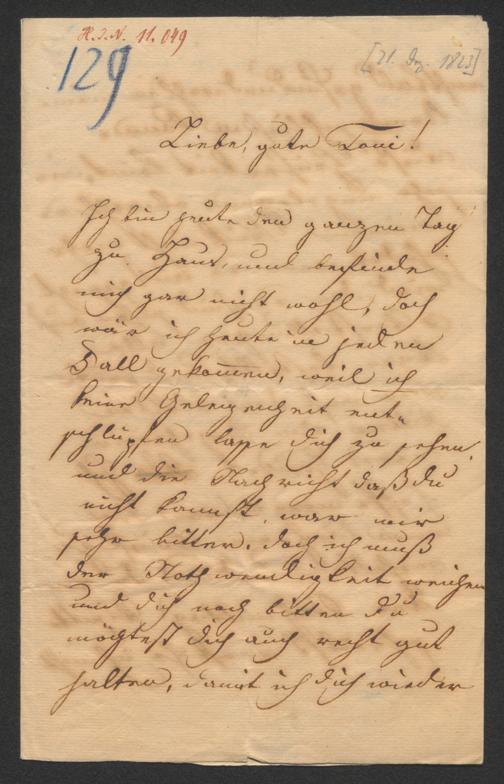 H.I.N. 11.049
129
[21. Dez. 1823]
Liebe, gute Toni!
Ich bin heute den ganzen Tag
zu Haus, und befinde
mich gar nicht wohl, doch
wär ich heute in jeden
Fall gekommen, weil ich
keine Gelegenheit ent-
schlüpfen lasse dich zu sehen.
und die Nachricht daß du
nicht kannst, war mir
sehr bitter. doch ich muß
der Nothwendigkeit weichen
und dich noch bitten Du
möchtest dich auch recht gut
halten, damit ich dich wieder